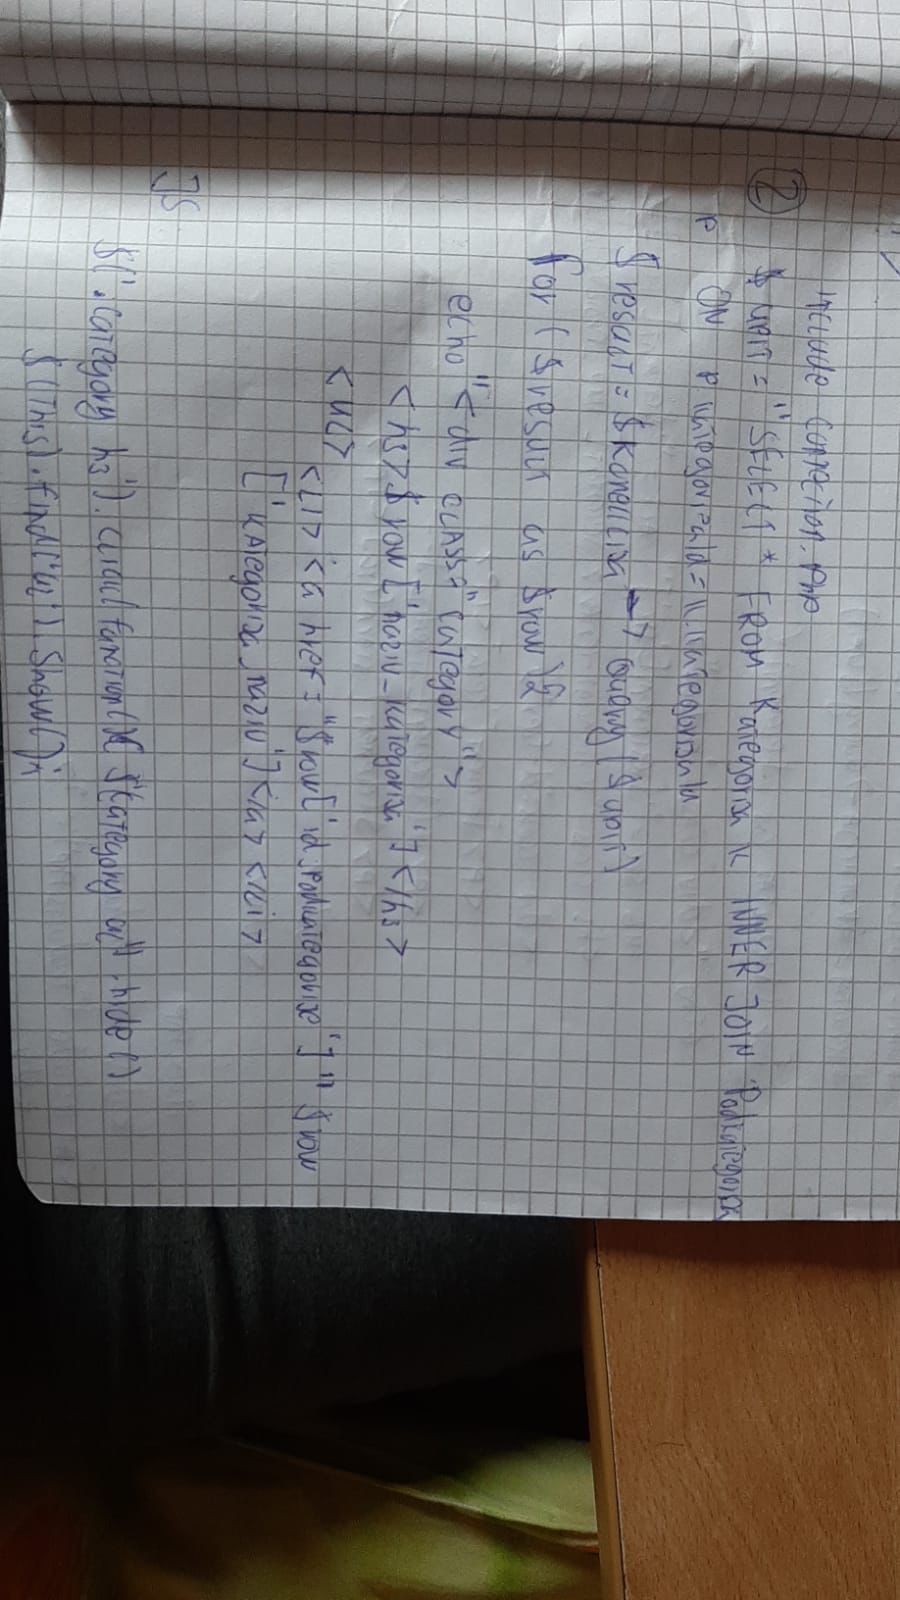 include connection.php
② $ upit = "SELECT * FROM Kategorija K INNER JOIN Podkategorija
P ON P.kategorijaId = K.kategorijaId
$result = $konekcija -> Query($upit)
for ($result as $row){
echo "<div class="category">
<h3>$row['naziv_kategorija']</h3>
<ul>
<li><a href="$row['id_podkategorije']" $row
['kategorija_naziv']</a></li>
JS
$('.category h3').click(function(){ $'category ul'.hide()
$(this).find('ul').show();